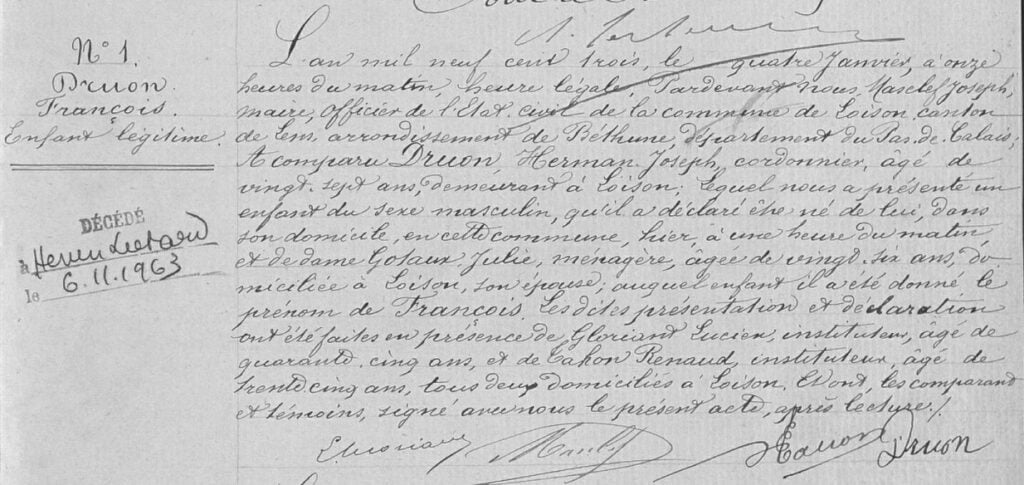 N° 1.
Druon
François.
Enfant légitime.
DÉCÉDÉ
à Henin Lietard
le 6.11.1963
L'an mil neuf cent trois, le quatre Janvier, à onze
heures du matin, heure légale, Pardevant Nous, Masclef Joseph,
maire, Officier de l'Etat civil de la commune de Loison, canton
de Lens, arrondissement de Béthune, département du Pas-de-Calais;
A comparu Druon, Herman Joseph, cordonnier, agé de
vingt-sept ans, demeurant à Loison; Lequel nous a présenté un
enfant du sexe masculin, qu'il a déclaré être né de lui, dans
son domicile, en cette commune, hier, à une heure du matin,
et de dame Gosaux Julie, ménagère, agée de vingt-six ans, do
miciliée à Loison, son épouse; auquel enfant il a été donné le
prénom de François. Les dites présentation et déclaration
ont été faites en présence de Gloriant Lucien, instituteur, âgé de
quarante-cinq ans, et de Cahon Renaud, instituteur, âgé de
trente cinq ans, tous deux domiciliés à Loison. Et ont, les comparant
et témoins, signé avec nous le présent acte, après lecture./.
Druon